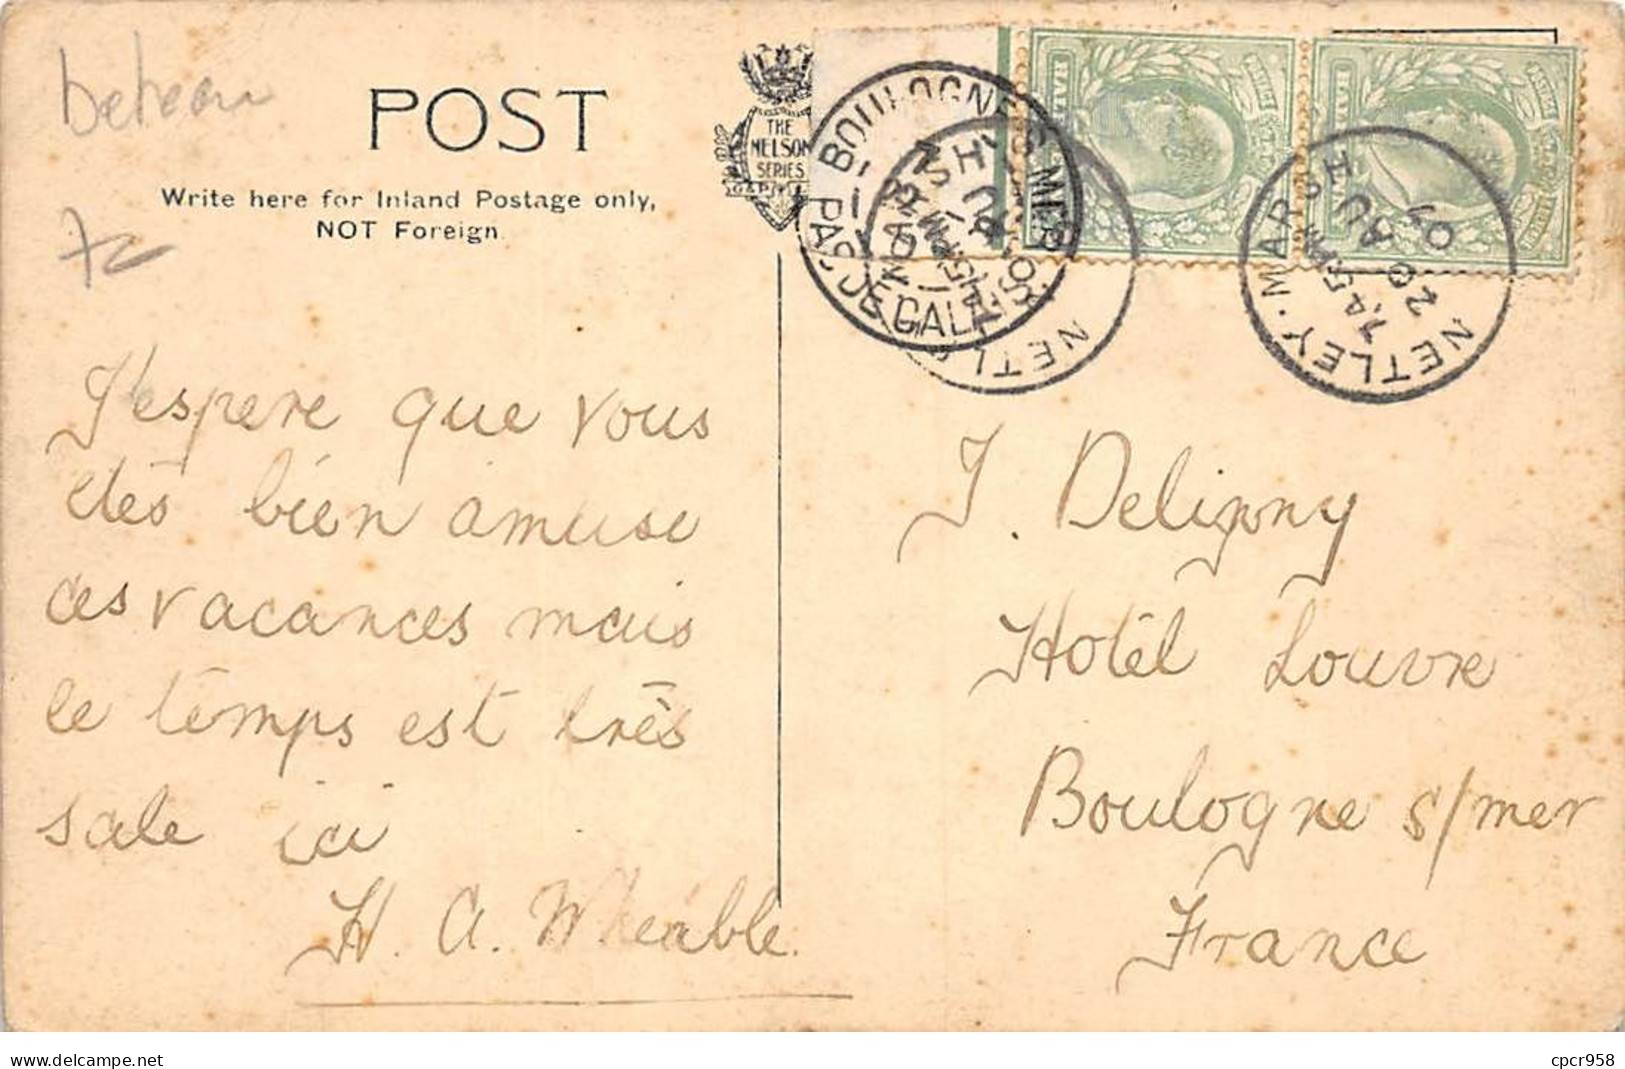 bateau
POST
THE
NELSON
SERIES
Write here for Inland Postage only,
NOT Foreign.
BOULOGNE S MER
PAS DE CALAIS
NETLEY
NETLEY . MARSH
7.45 PM
20 AU
07
J'espere que vous
etes bien amuse
ces vacances mais
le temps est très
sale ici
H. A. Wheable.
J. Delipny
Hotel Louvre
Boulogne s/mer
France
cpcr958